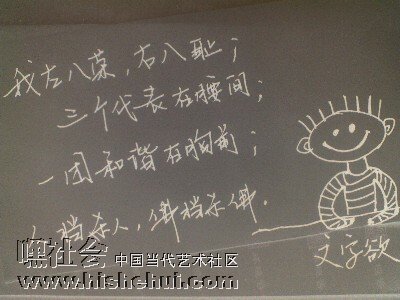 我左八荣，右八耻；
三个代表在腰间；
一团和谐在胸前；
人档杀人，佛档杀佛.
文字欲
嘿社会 中国当代艺术社区
www.hishehui.com